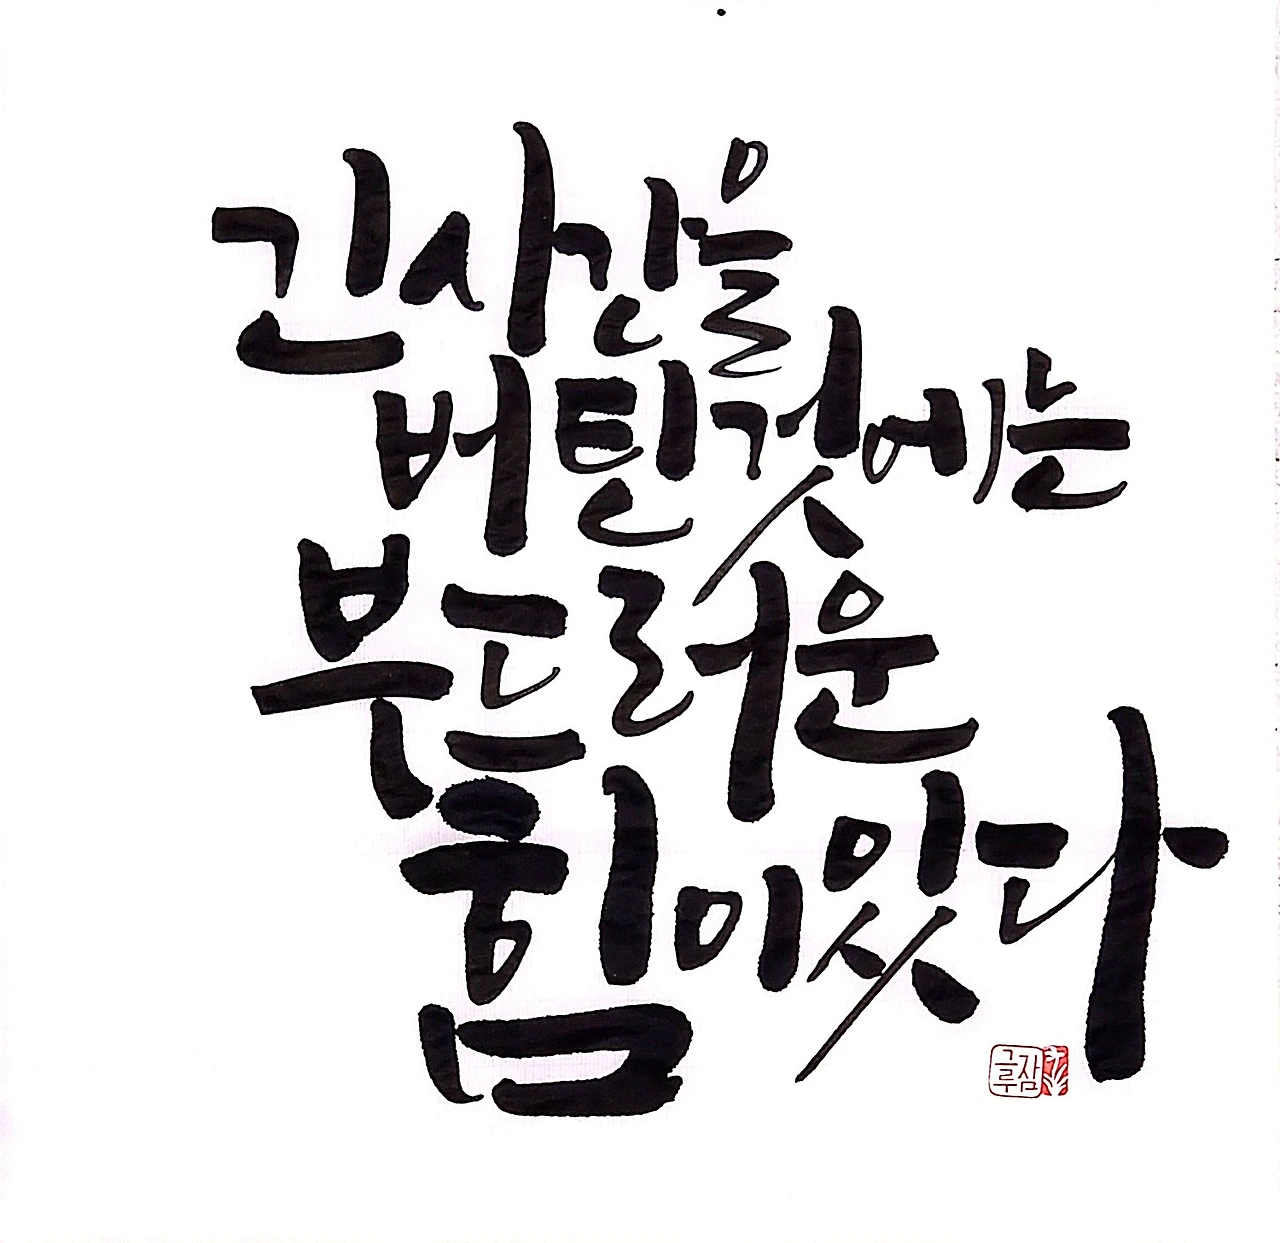 긴 시간을
버틴 것에는
부드러운
힘이 있다
그루잠